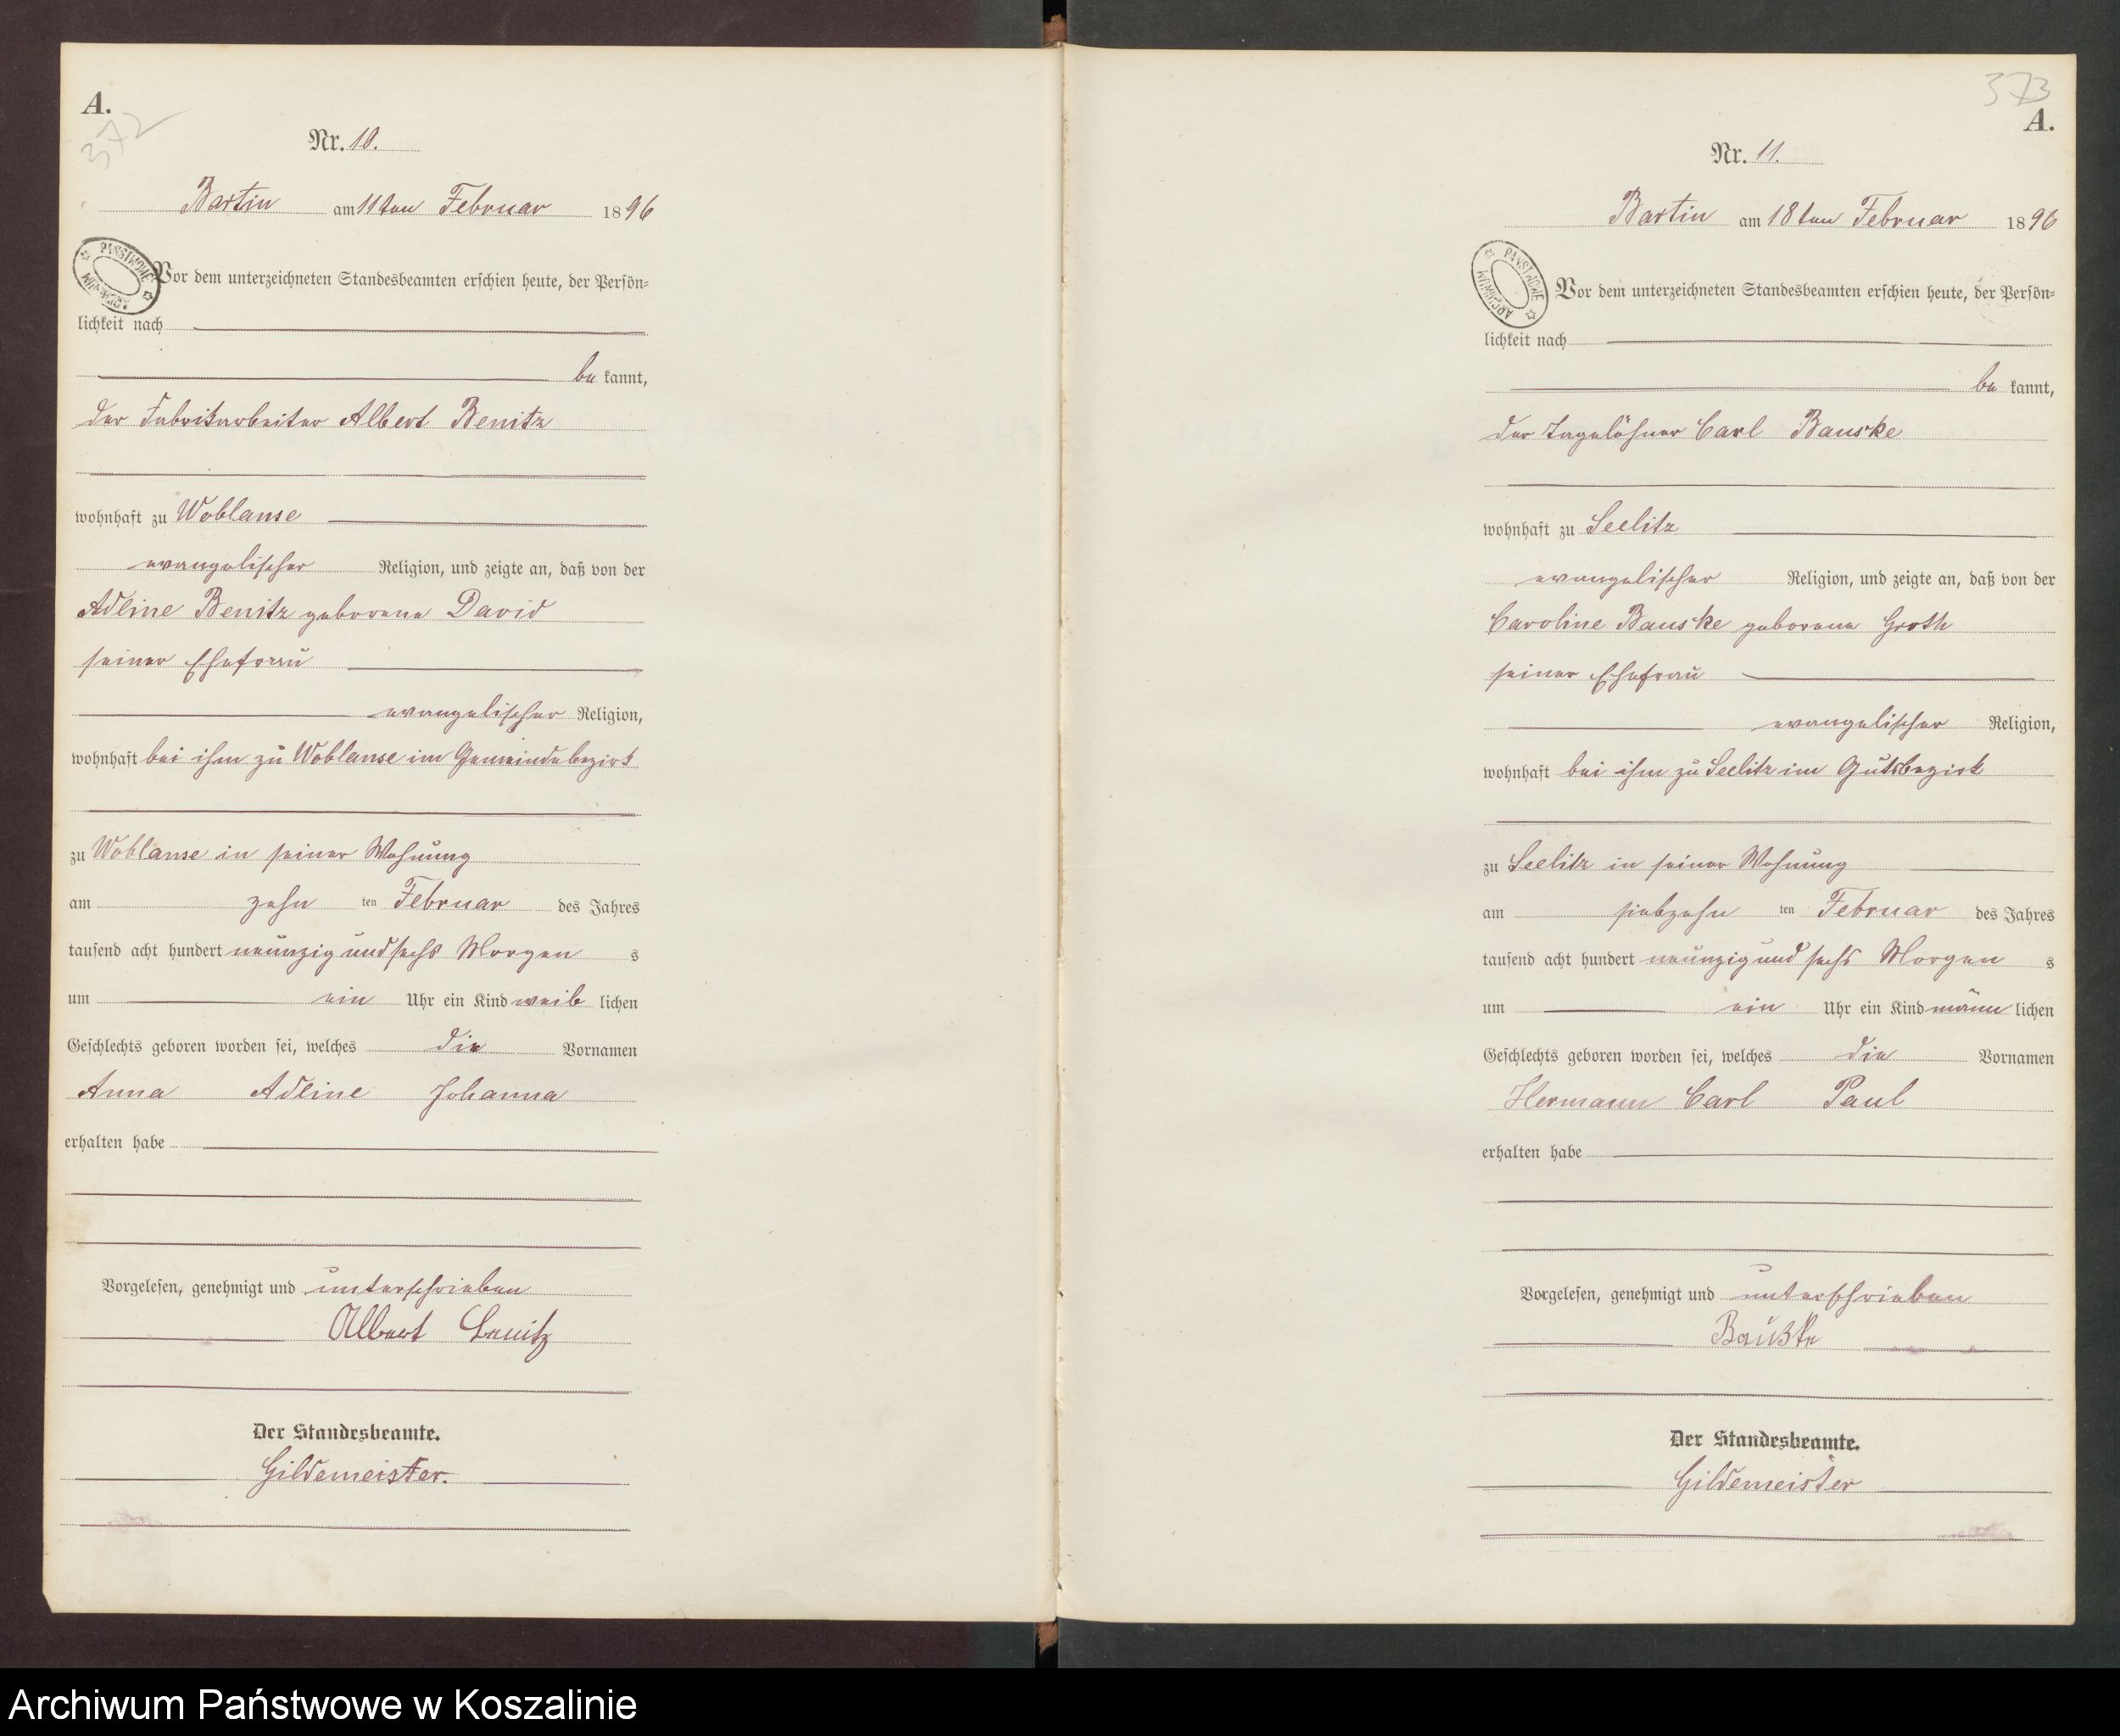 A.
372
Nr. 10.
Bartin am 11ten Februar 1896
PAŃSTWOWE ARCHIWUM
Vor dem unterzeichneten Standesbeamten erschien heute, der Persön=
lichkeit nach
be kannt,
der Fabrikarbeiter Albert Benitz
wohnhaft zu Woblanse
evangelischer Religion, und zeigte an, daß von der
Adline Benitz geborene David
seiner Ehefrau
evangelischer Religion,
wohnhaft bei ihm zu Woblanse im Gemeindebezirk
zu Woblanse in seiner Wohnung
am zehn ten Februar des Jahres
tausend acht hundert neunzig und sechs Morgen s
um ein Uhr ein Kind weib lichen
Geschlechts geboren worden sei, welches die Vornamen
Anna Adline Johanna
erhalten habe
Vorgelesen, genehmigt und unterschrieben
Albert Benitz
Der Standesbeamte.
Gildemeister.
373
A.
Nr. 11.
Bartin am 18ten Februar 1896
PAŃSTWOWE ARCHIWUM
Vor dem unterzeichneten Standesbeamten erschien heute, der Persön=
lichkeit nach
be kannt,
der Tagelöhner Carl Bauske
wohnhaft zu Seelitz
evangelischer Religion, und zeigte an, daß von der
Caroline Bauske geborene Groth
seiner Ehefrau
evangelischer Religion,
wohnhaft bei ihm zu Seelitz im Gutsbezirk
zu Seelitz in seiner Wohnung
am siebzehn ten Februar des Jahres
tausend acht hundert neunzig und sechs Morgen s
um ein Uhr ein Kind männ lichen
Geschlechts geboren worden sei, welches die Vornamen
Hermann Carl Paul
erhalten habe
Vorgelesen, genehmigt und unterschrieben
Baußke
Der Standesbeamte.
Gildemeister
Archiwum Państwowe w Koszalinie